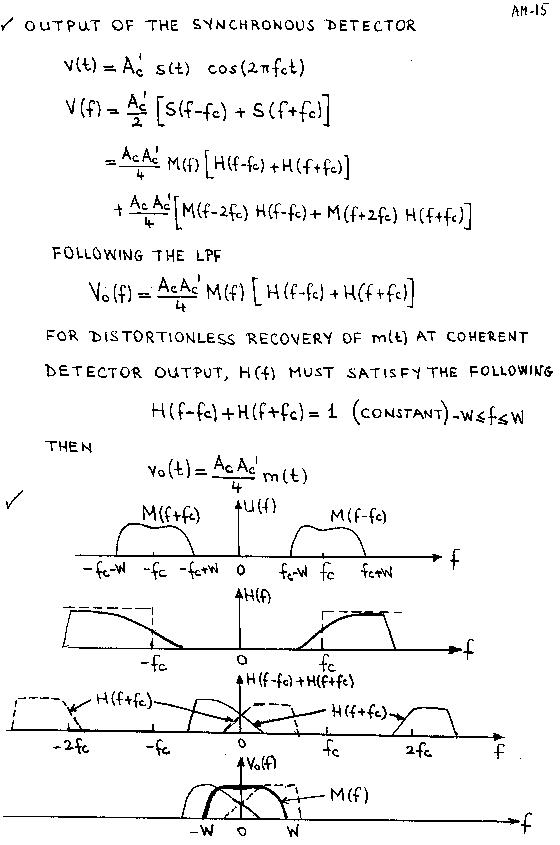 AM-15
✓ OUTPUT OF THE SYNCHRONOUS DETECTOR
v(t) = Ac' s(t) cos(2πfct)
V(f) = Ac'/2 [S(f-fc) + S(f+fc)]
= AcAc'/4 M(f) [H(f-fc) + H(f+fc)]
+ AcAc'/4 [M(f-2fc) H(f-fc) + M(f+2fc) H(f+fc)]
FOLLOWING THE LPF
Vo(f) = AcAc'/4 M(f) [H(f-fc) + H(f+fc)]
FOR DISTORTIONLESS RECOVERY OF m(t) AT COHERENT
DETECTOR OUTPUT, H(f) MUST SATISFY THE FOLLOWING
H(f-fc) + H(f+fc) = 1 (CONSTANT) -W≤f≤W
THEN
vo(t) = AcAc'/4 m(t)
✓
M(f+fc) U(f) M(f-fc)
-fc-W -fc -fc+W 0 fc-W fc fc+W f
H(f)
-fc 0 fc f
H(f-fc) + H(f+fc)
H(f+fc) H(f+fc)
-2fc -fc 0 fc 2fc f
Vo(f)
M(f)
-W 0 W f